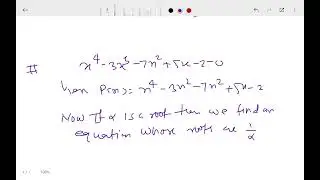 x⁴-3x³-7x²+5x-2=0
P(x)= x⁴-3x²-7x²+5x-2
Now if α is a root then we find an
equation whose roots are 1/α